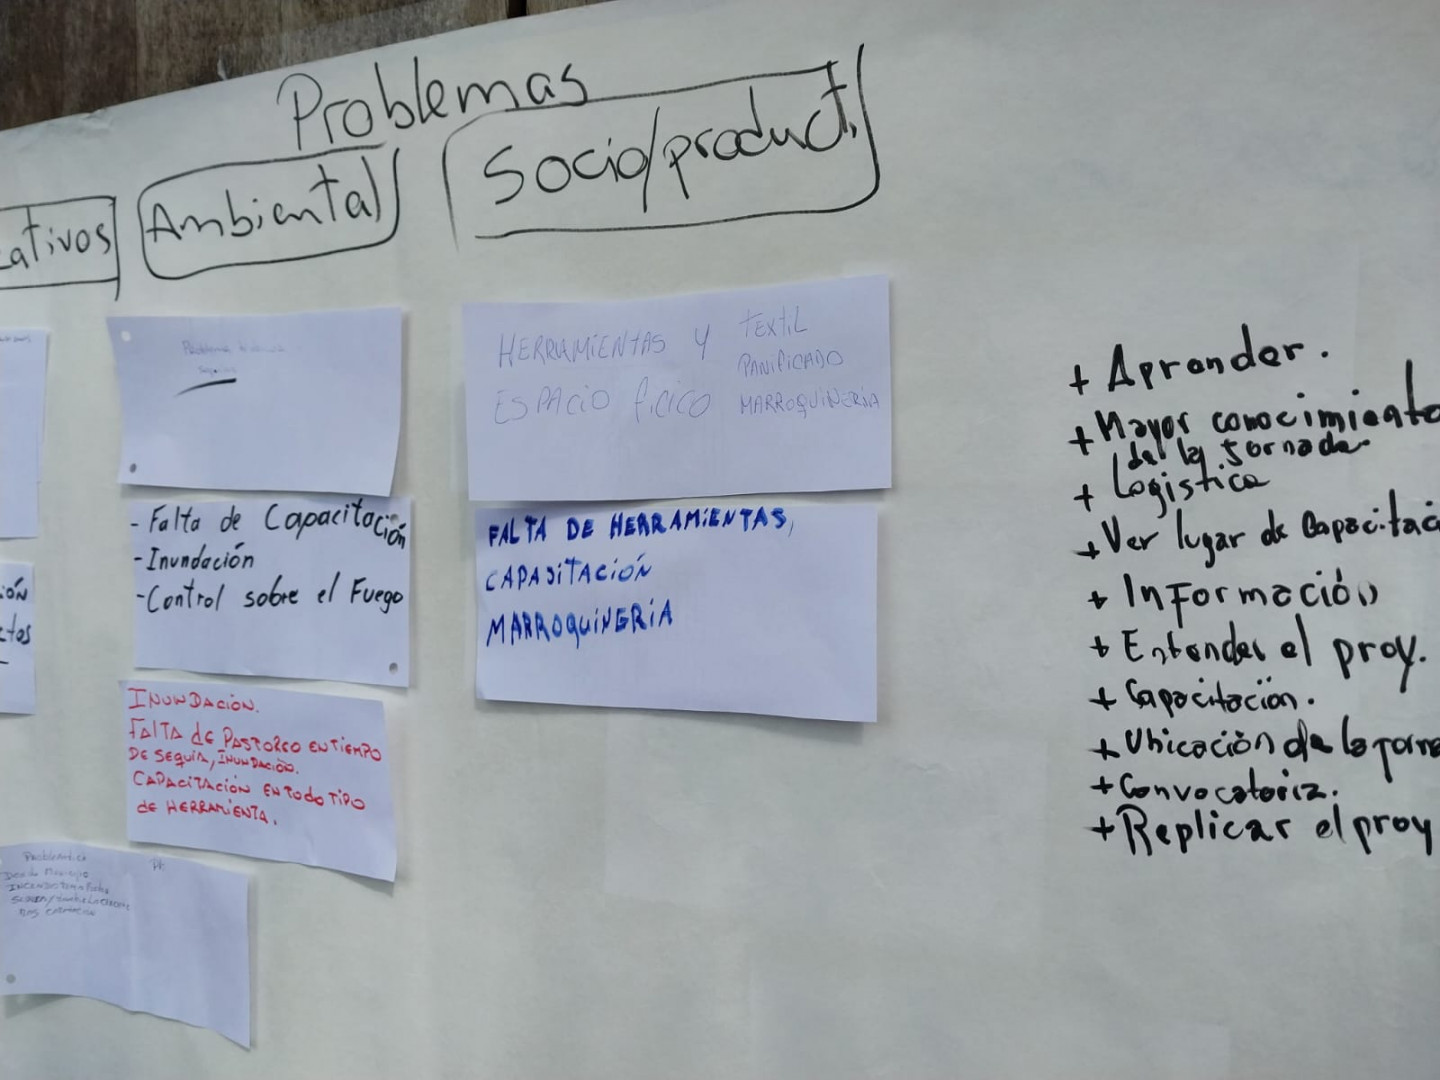 Problemas
cativos
Ambiental
Socio/product.
Problema
HERRAMIENTAS Y
ESPACIO FICICO
TEXTIL
PANIFICADO
MARROQUINERIA
- Falta de Capacitación
- Inundación
- Control sobre el Fuego
FALTA DE HERRAMIENTAS,
CAPASITACIÓN
MARROQUINERIA
INUNDACIÓN.
FALTA de PASTOREO EN TIEMPO
DE SEQUIA, INUNDACIÓN.
CAPACITACIÓN EN TODO TIPO
de HERRAMIENTA.
ión
ctos
Problematica
+ Aprender.
+ Mayor conocimiento
de la Jornada
+ Logistica
+ Ver lugar de Capacitaci
+ Información
+ Entender el proy.
+ Capacitación.
+ Ubicación de la
+ Convocatoria.
+ Replicar el proy